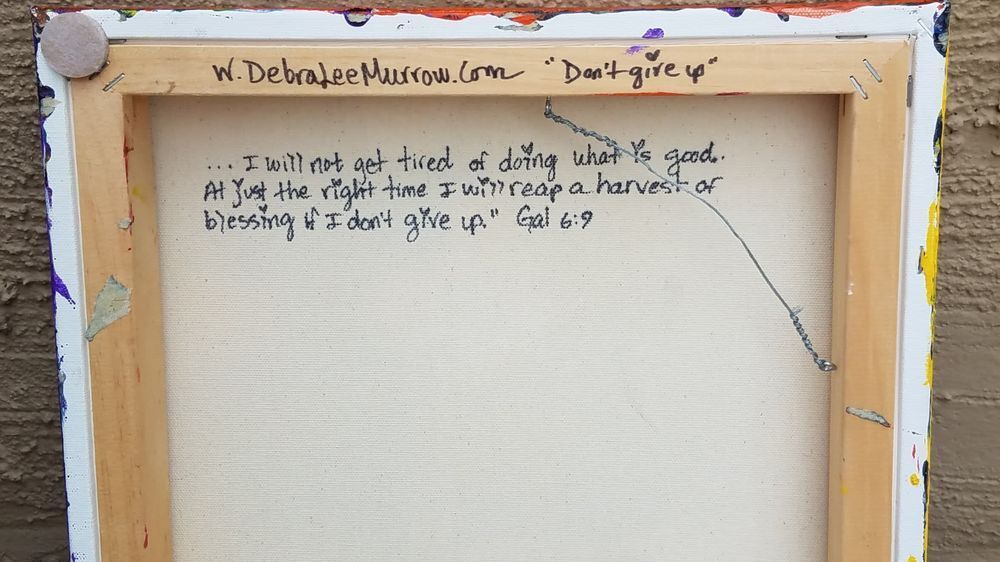 W.DebraLeeMurrow.Com "Don't give up"
... I will not get tired of doing what is good.
At just the right time I will reap a harvest of
blessing if I don't give up." Gal 6:9